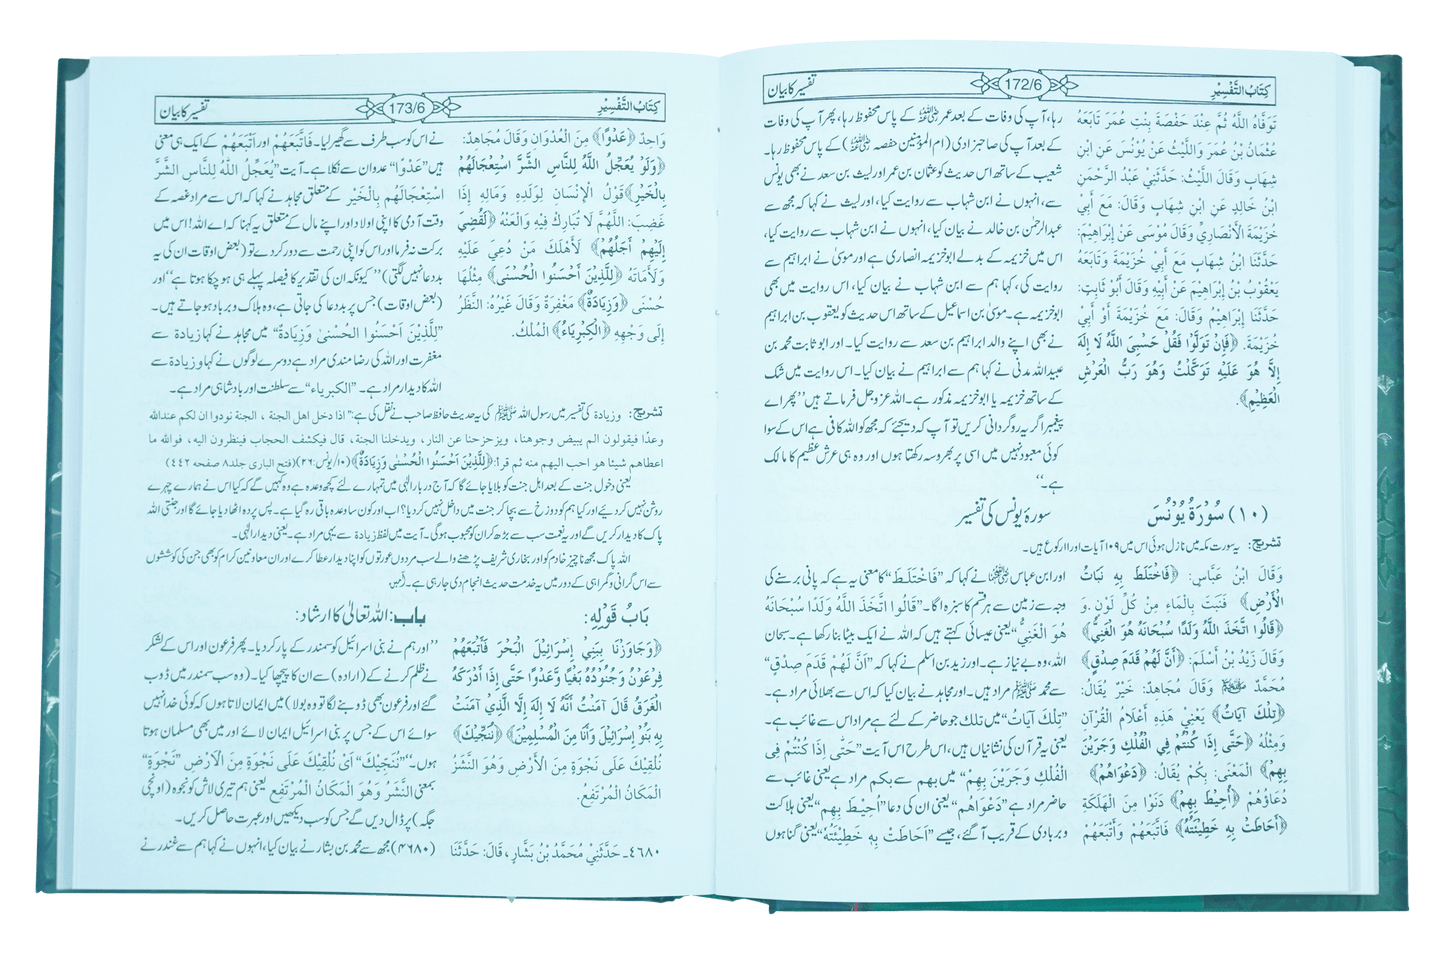 كِتَابُ التَّفْسِيْرِ
172/6
تفسیر کا بیان
تَوَفَّاهُ اللَّهُ ثُمَّ عِنْدَ حَفْصَةَ بِنْتِ عُمَرَ تَابَعَهُ
عُثْمَانُ بْنُ عُمَرَ وَاللَّيْثُ عَنْ يُونُسَ عَنِ ابْنِ
شِهَابٍ وَقَالَ اللَّيْثُ: حَدَّثَنِي عَبْدُ الرَّحْمَنِ
ابْنُ خَالِدٍ عَنِ ابْنِ شِهَابٍ وَقَالَ: مَعَ أَبِي
خُزَيْمَةَ الْأَنْصَارِيِّ وَقَالَ مُوْسَى عَنْ إِبْرَاهِيْمَ:
حَدَّثَنَا ابْنُ شِهَابٍ مَعَ أَبِي خُزَيْمَةَ وَتَابَعَهُ
يَعْقُوْبُ بْنُ إِبْرَاهِيْمَ عَنْ أَبِيْهِ وَقَالَ أَبُو ثَابِتٍ:
حَدَّثَنَا إِبْرَاهِيْمُ وَقَالَ: مَعَ خُزَيْمَةَ أَوْ أَبِي
خُزَيْمَةَ. ﴿فَإِنْ تَوَلَّوْا فَقُلْ حَسْبِيَ اللَّهُ لَا إِلَهَ
إِلَّا هُوَ عَلَيْهِ تَوَكَّلْتُ وَهُوَ رَبُّ الْعَرْشِ
الْعَظِيْمِ﴾.
رہا، آپ کی وفات کے بعد عمر رضی اللہ عنہ کے پاس محفوظ رہا، پھر آپ کی وفات
کے بعد آپ کی صاحبزادی (ام المؤمنین حفصہ رضی اللہ عنہا) کے پاس محفوظ رہا۔
شعیب کے ساتھ اس حدیث کو عثمان بن عمر اور لیث بن سعد نے بھی یونس
سے، انہوں نے ابن شہاب سے روایت کیا، اور لیث نے کہا کہ مجھ سے
عبدالرحمٰن بن خالد نے بیان کیا، انہوں نے ابن شہاب سے روایت کیا،
اس میں خزیمہ کے بدلے ابوخزیمہ انصاری ہے اور موسیٰ نے ابراہیم سے
روایت کی، کہا ہم سے ابن شہاب نے بیان کیا، اس روایت میں بھی
ابوخزیمہ ہے۔ موسیٰ بن اسماعیل کے ساتھ اس حدیث کو یعقوب بن ابراہیم
نے بھی اپنے والد ابراہیم بن سعد سے روایت کیا۔ اور ابو ثابت محمد بن
عبیداللہ مدنی نے کہا ہم سے ابراہیم نے بیان کیا۔ اس روایت میں شک
کے ساتھ خزیمہ یا ابوخزیمہ مذکور ہے۔ اللہ عزوجل فرماتے ہیں ”پھر اے
پیغمبر اگر یہ روگردانی کریں تو آپ کہہ دیجئے کہ مجھ کو اللہ کافی ہے اس کے سوا
کوئی معبود نہیں میں اسی پر بھروسہ رکھتا ہوں اور وہ ہی عرش عظیم کا مالک
ہے۔“
(١٠) سُوْرَةُ يُوْنُسَ
سورۂ یونس کی تفسیر
تشریح: یہ سورت مکہ میں نازل ہوئی اس میں ۱۰۹ آیات اور ۱۱ رکوع ہیں۔
وَقَالَ ابْنُ عَبَّاسٍ: ﴿فَاخْتَلَطَ بِهِ نَبَاتُ
الْأَرْضِ﴾ فَنَبَتَ بِالْمَاءِ مِنْ كُلِّ لَوْنٍ وَ
﴿قَالُوا اتَّخَذَ اللَّهُ وَلَدًا سُبْحَانَهُ هُوَ الْغَنِيُّ﴾
وَقَالَ زَيْدُ بْنُ أَسْلَمَ: ﴿أَنَّ لَهُمْ قَدَمَ صِدْقٍ﴾
مُحَمَّدٌ ﷺ وَقَالَ مُجَاهِدٌ: خَيْرٌ يُقَالُ:
﴿تِلْكَ آيَاتُ﴾ يَعْنِي هَذِهِ أَعْلَامُ الْقُرْآنِ
وَمِثْلُهُ ﴿حَتَّى إِذَا كُنْتُمْ فِي الْفُلْكِ وَجَرَيْنَ
بِهِمْ﴾ الْمَعْنَى: بِكُمْ يُقَالُ: ﴿دَعْوَاهُمْ﴾
دُعَاؤُهُمْ ﴿أُحِيْطَ بِهِمْ﴾ دَنَوْا مِنَ الْهَلَكَةِ
﴿أَحَاطَتْ بِهِ خَطِيْئَتُهُ﴾ فَاتَّبَعَهُمْ وَأَتْبَعَهُمْ
اور ابن عباس رضی اللہ عنہما نے کہا کہ ”فَاخْتَلَطَ“ کا معنی یہ ہے کہ پانی برسنے کی
وجہ سے زمین سے ہر قسم کا سبزہ اگا۔ ”قَالُوا اتَّخَذَ اللَّهُ وَلَدًا سُبْحَانَهُ
هُوَ الْغَنِيُّ“ یعنی عیسائی کہتے ہیں کہ اللہ نے ایک بیٹا بنا رکھا ہے۔ سبحان
اللہ، وہ بے نیاز ہے۔ اور زید بن اسلم نے کہا کہ ”اَنَّ لَهُمْ قَدَمَ صِدْقٍ“
سے محمد ﷺ مراد ہیں۔ اور مجاہد نے بیان کیا کہ اس سے بھلائی مراد ہے۔
”تِلْكَ آيَاتُ“ میں تلك جو حاضر کے لئے ہے مراد اس سے غائب ہے۔
یعنی یہ قرآن کی نشانیاں ہیں، اسی طرح اس آیت ”حَتّٰى اِذَا كُنْتُمْ فِى
الْفُلْكِ وَجَرَيْنَ بِهِمْ“ میں بهم سے بکم مراد ہے یعنی غائب سے
حاضر مراد ہے ”دَعْوَاهُمْ“ یعنی ان کی دعا ”اُحِيْطَ بِهِمْ“ یعنی ہلاکت
و بربادی کے قریب آ گئے، جیسے ”اَحَاطَتْ بِهٖ خَطِيْئَتُهٗ“ یعنی گناہوں
كِتَابُ التَّفْسِيْرِ
173/6
تفسیر کا بیان
وَاحِدٌ ﴿عَدْوًا﴾ مِنَ الْعُدْوَانِ وَقَالَ مُجَاهِدٌ:
﴿وَلَوْ يُعَجِّلُ اللَّهُ لِلنَّاسِ الشَّرَّ اسْتِعْجَالَهُمْ
بِالْخَيْرِ﴾ قَوْلُ الْإِنْسَانِ لِوَلَدِهِ وَمَالِهِ إِذَا
غَضِبَ: اللَّهُمَّ لَا تُبَارِكْ فِيْهِ وَالْعَنْهُ ﴿لَقُضِيَ
إِلَيْهِمْ أَجَلُهُمْ﴾ لَأَهْلَكَ مَنْ دُعِيَ عَلَيْهِ
وَلَأَمَاتَهُ ﴿لِلَّذِيْنَ أَحْسَنُوا الْحُسْنَى﴾ مِثْلُهَا
حُسْنَى ﴿وَزِيَادَةٌ﴾ مَغْفِرَةٌ وَقَالَ غَيْرُهُ: النَّظَرُ
إِلَى وَجْهِهِ ﴿الْكِبْرِيَاءُ﴾ الْمُلْكُ.
نے اس کو سب طرف سے گھیر لیا۔ فَاتَّبَعَهُمْ اور اَتْبَعَهُمْ کے ایک ہی معنی
ہیں ”عَدْوًا“ عدوان سے نکلا ہے۔ آیت ”يُعَجِّلُ اللّٰهُ لِلنَّاسِ الشَّرَّ
اسْتِعْجَالَهُمْ بِالْخَيْرِ کے متعلق مجاہد نے کہا کہ اس سے مراد غصہ کے
وقت آدمی کا اپنی اولاد اور اپنے مال کے متعلق یہ کہنا کہ اے اللہ! اس میں
برکت نہ فرما اور اس کو اپنی رحمت سے دور کر دے تو (بعض اوقات ان کی یہ
بددعا نہیں لگتی) ”کیونکہ ان کی تقدیر کا فیصلہ پہلے ہی ہو چکا ہوتا ہے“ اور
(بعض اوقات) جس پر بددعا کی جاتی ہے، وہ ہلاک و برباد ہو جاتے ہیں۔
”لِلَّذِيْنَ اَحْسَنُوا الْحُسْنٰى وَزِيَادَةٌ“ میں مجاہد نے کہا زیادة سے
مغفرت اور اللہ کی رضامندی مراد ہے دوسرے لوگوں نے کہا وزیادة سے
اللہ کا دیدار مراد ہے۔ ”الکبریاء“ سے سلطنت اور بادشاہی مراد ہے۔
تشریح: وزیادة کی تفسیر میں رسول اللہ ﷺ کی یہ حدیث حافظ صاحب نے نقل کی ہے: ”اذا دخل اهل الجنة ، الجنة نودوا ان لكم عندالله
وعدًا فيقولون الم يبيض وجوهنا، ويزحزحنا عن النار، ويدخلنا الجنة، قال فيكشف الحجاب فينظرون اليه، فوالله ما
اعطاهم شيئا هو احب اليهم منه ثم قرأ: ﴿لِلَّذِيْنَ اَحْسَنُوا الْحُسْنٰى وَزِيَادَةٌ﴾ (۱۰/یونس: ۲۶) (فتح الباری جلد۸ صفحہ ۴۴۲)
یعنی دخول جنت کے بعد اہل جنت کو بلایا جائے گا کہ آج دربار الٰہی میں تمہارے لئے کچھ وعدہ ہے وہ کہیں گے کہ کیا اس نے ہمارے چہرے
روشن نہیں کر دیئے اور کیا ہم کو دوزخ سے بچا کر جنت میں داخل نہیں کر دیا؟ اب اور کون سا وعدہ باقی رہ گیا ہے۔ پس پردہ اٹھا دیا جائے گا اور جنتی اللہ
پاک کا دیدار کریں گے اور یہ نعمت سب سے بڑھ کر ان کو محبوب ہوگی۔ آیت میں لفظ زیادة سے یہی مراد ہے۔ یعنی دیدار الٰہی۔
اللہ پاک مجھ ناچیز خادم کو اور بخاری شریف پڑھنے والے سب مردوں عورتوں کو اپنا دیدار عطا کرے اور ان معاونین کرام کو بھی جن کی کوششوں
سے اس گرانی و گمراہی کے دور میں یہ خدمت حدیث انجام دی جا رہی ہے۔ آمین
بَابُ قَوْلِهِ:
باب: اللہ تعالیٰ کا ارشاد:
﴿وَجَاوَزْنَا بِبَنِي إِسْرَائِيْلَ الْبَحْرَ فَأَتْبَعَهُمْ
فِرْعَوْنُ وَجُنُوْدُهُ بَغْيًا وَّعَدْوًا حَتَّى إِذَا أَدْرَكَهُ
الْغَرَقُ قَالَ آمَنْتُ أَنَّهُ لَا إِلَهَ إِلَّا الَّذِيْ آمَنَتْ
بِهِ بَنُوْ إِسْرَائِيْلَ وَأَنَا مِنَ الْمُسْلِمِيْنَ﴾ ﴿نُنَجِّيْكَ﴾
نُلْقِيْكَ عَلَى نَجْوَةٍ مِنَ الْأَرْضِ وَهُوَ النَّشَزُ
الْمَكَانُ الْمُرْتَفِعُ.
”اور ہم نے بنی اسرائیل کو سمندر کے پار کر دیا۔ پھر فرعون اور اس کے لشکر
نے ظلم کرنے کے (ارادہ) سے ان کا پیچھا کیا۔ (وہ سب سمندر میں ڈوب
گئے اور فرعون بھی ڈوبنے لگا تو وہ بولا) میں ایمان لاتا ہوں کہ کوئی خدا نہیں
سوائے اس کے جس پر بنی اسرائیل ایمان لائے اور میں بھی مسلمان ہوتا
ہوں۔“ ”نُنَجِّيْكَ“ اَىْ نُلْقِيْكَ عَلٰى نَجْوَةٍ مِنَ الْاَرْضِ ”نَجْوَةٍ“
بمعنی النَّشَرُ وَهُوَ الْمَكَانُ الْمُرْتَفِعُ یعنی ہم تیری لاش کو نجوہ (اونچی
جگہ) پر ڈال دیں گے جس کو سب دیکھیں اور عبرت حاصل کریں۔
٤٦٨٠ـ حَدَّثَنِيْ مُحَمَّدُ بْنُ بَشَّارٍ، قَالَ: حَدَّثَنَا
(۴۶۸۰) مجھ سے محمد بن بشار نے بیان کیا، انہوں نے کہا ہم سے غندر نے